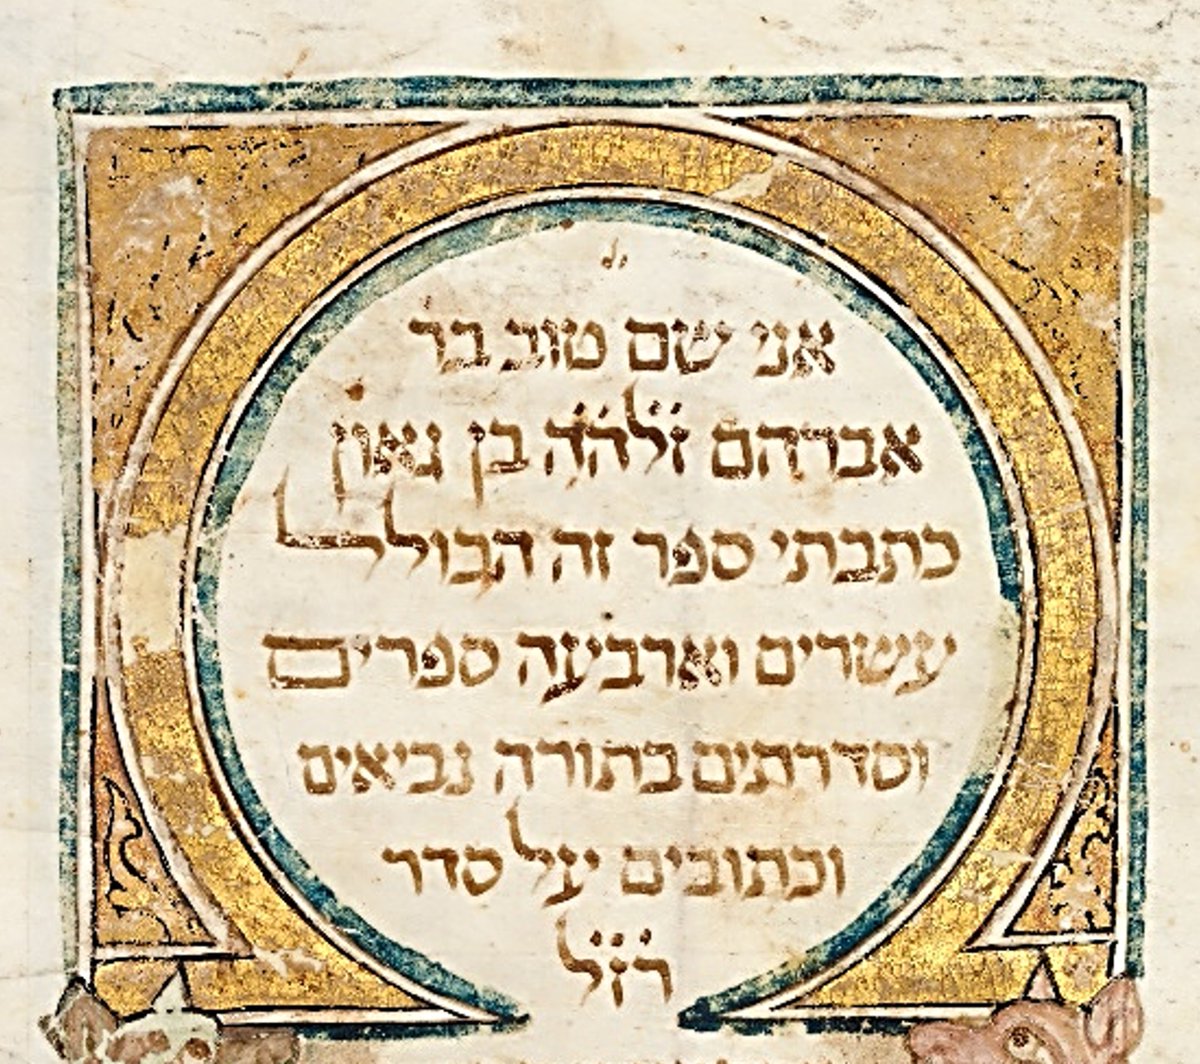 אני שם טוב בר
אברהם זלה֗ה֗ בן גאון
כתבתי ספר זה הכולל
עשרים וארבעה ספרים
וסדרתים בתורה נביאים
וכתובים על סדר
רז֗ל